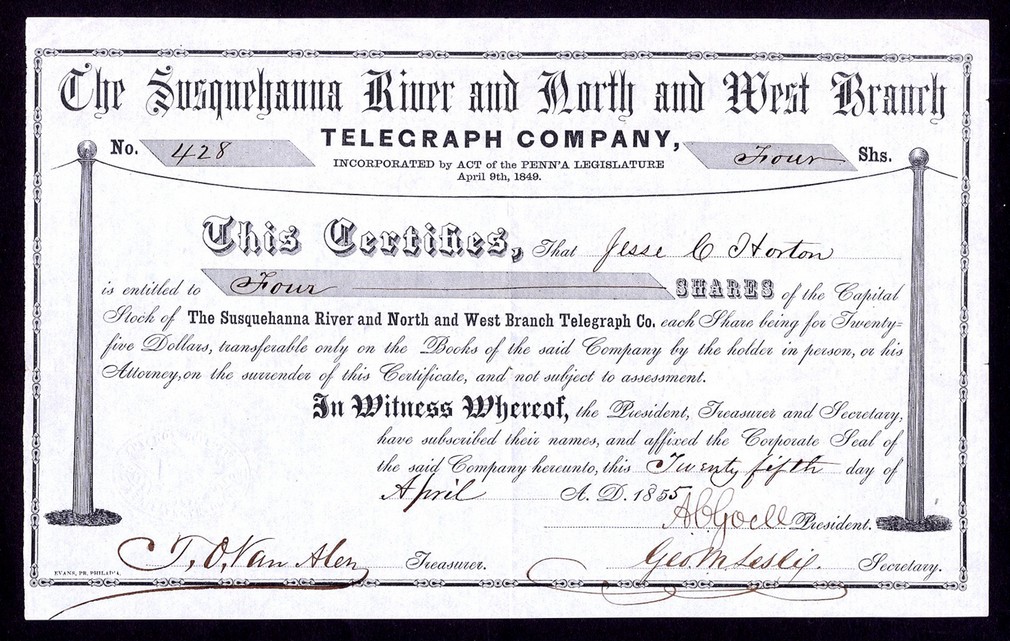 The Susquehanna River and North and West Branch
TELEGRAPH COMPANY,
No. 428
INCORPORATED by ACT of the PENN'A LEGISLATURE
April 9th, 1849.
Four Shs.
This Certifies, That Jesse C Horton
is entitled to Four SHARES of the Capital
Stock of The Susquehanna River and North and West Branch Telegraph Co. each Share being for Twenty=
five Dollars, transferable only on the Books of the said Company by the holder in person, or his
Attorney, on the surrender of this Certificate, and not subject to assessment.
In Witness Whereof, the President, Treasurer and Secretary,
have subscribed their names, and affixed the Corporate Seal of
the said Company hereunto, this Twenty fifth day of
April A. D. 1855
President.
T. O. Van Alen Treasurer. Geo. M Leslie Secretary.
EVANS, PR. PHILAD'A.